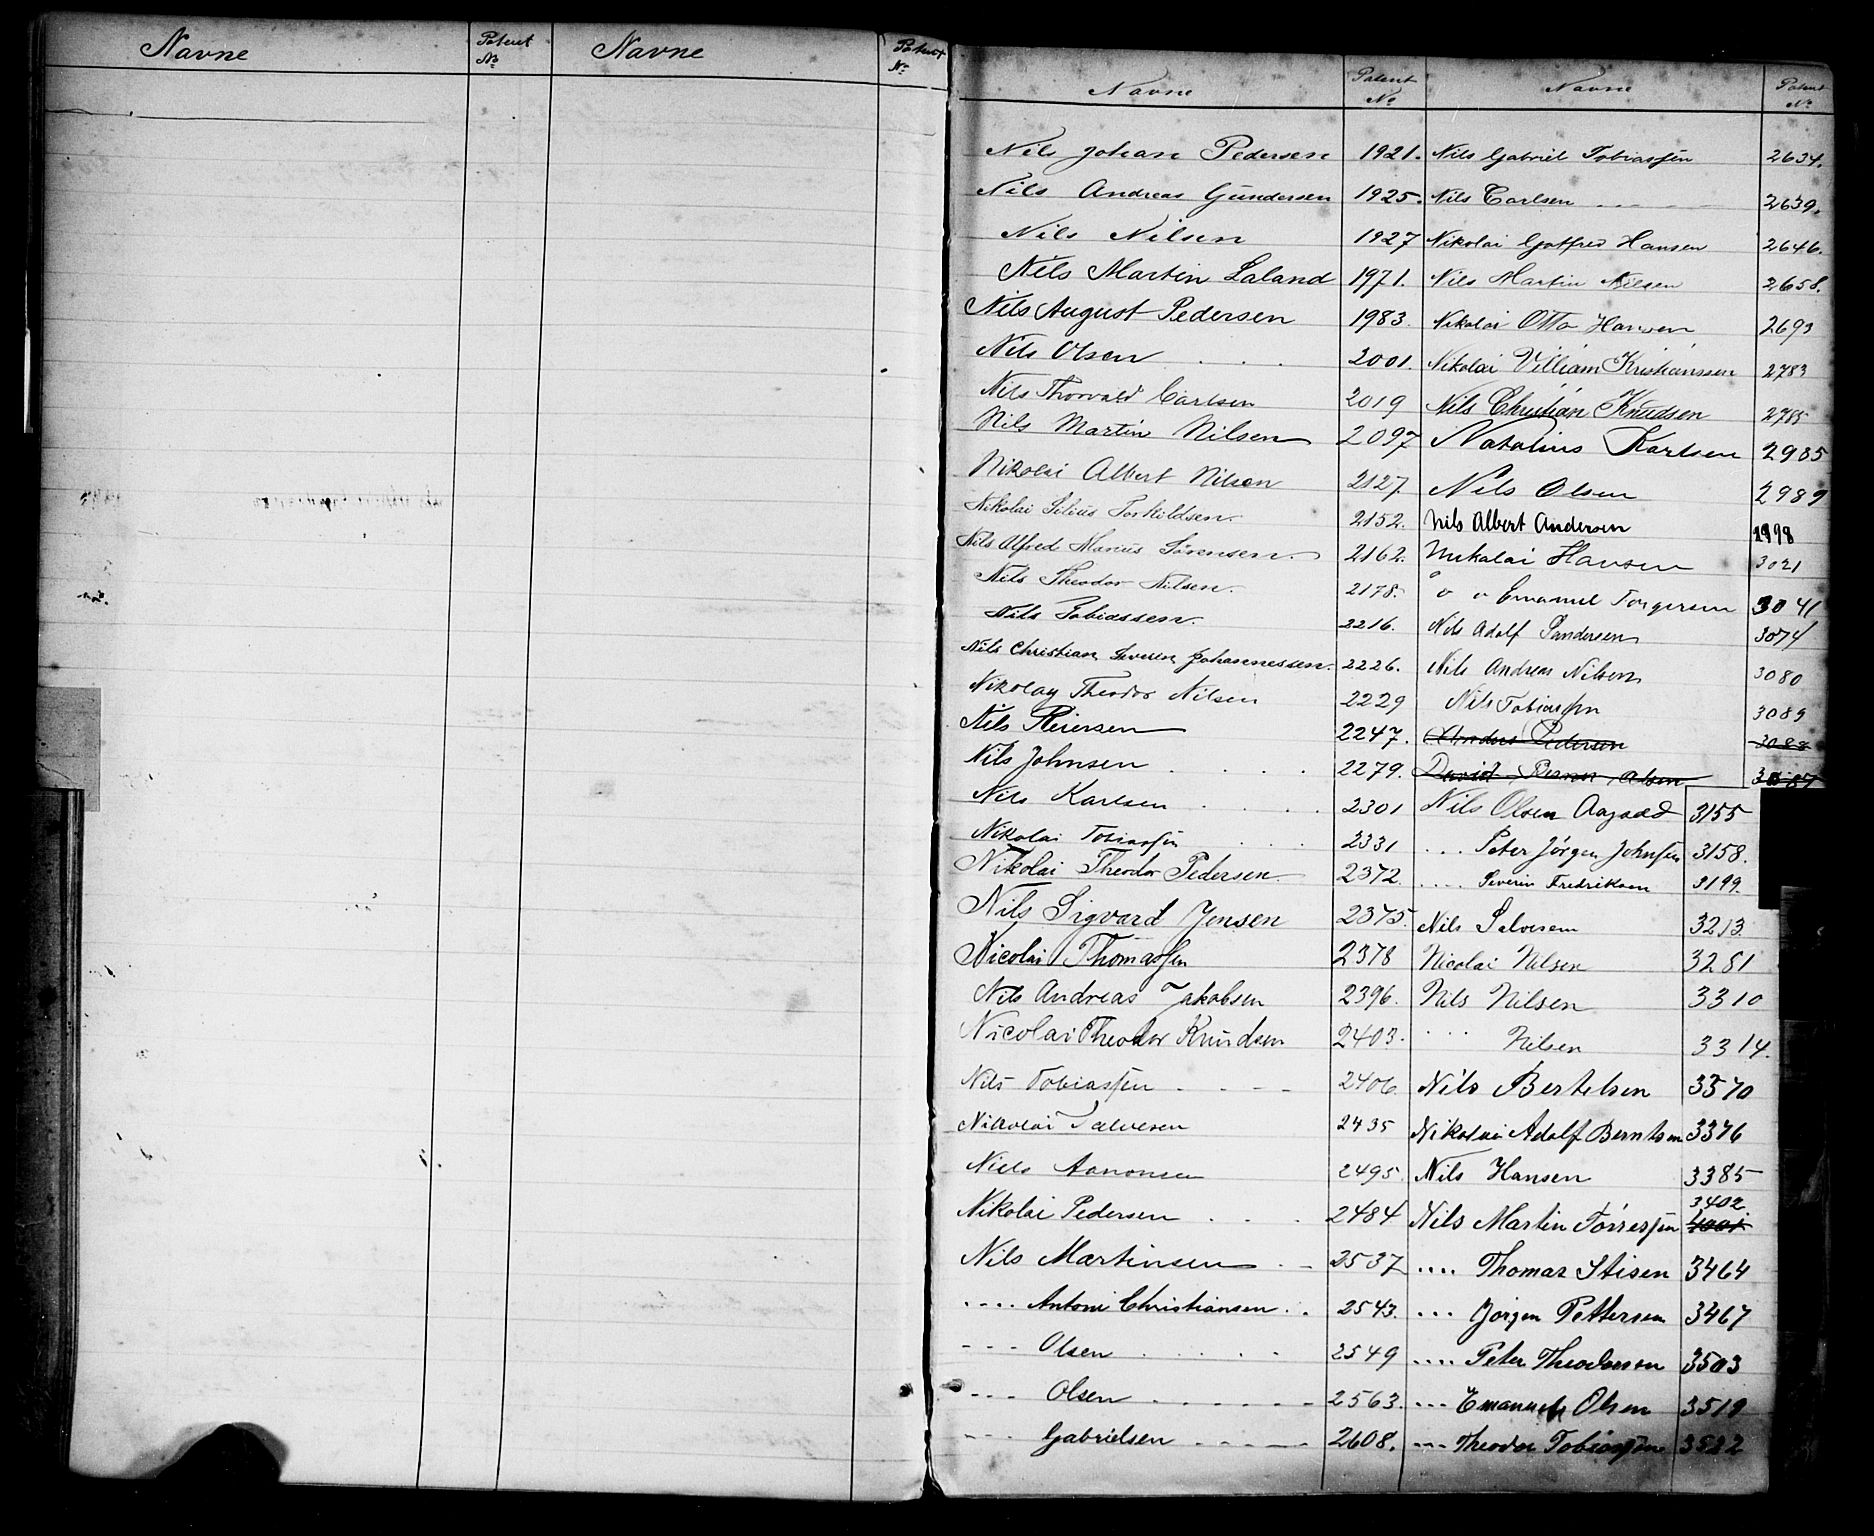 Navne Patent No Navne Patent No
Navne Patent No Navne Patent No
Nils Johan Pedersen 1921.
Nils Andreas Gundersen 1925.
Nils Nilsen 1927
Nils Martin Laland 1971.
Nils August Pedersen 1983.
Nils Olsen . . . 2001.
Nils Thorvald Carlsen 2019
Nils Martin Nilsen 2097
Nikolai Albert Nilsen 2127
Nikolai Torkildsen. 2152.
Nils Alfred Marius Sørensen. 2162.
Nils Theodor Nilsen. 2178.
Nils Tobiassen. 2216.
Nils Christian Severin Johannessen. 2226.
Nikolay Theodor Nilsen 2229
Nils Reiersen 2247.
Nils Johnsen . . . . 2279.
Nils Karlsen . . . 2301
Nikolai Tobiassen . . . 2331
Nikolai Theodor Pedersen 2372.
Nils Sigvard Jensen 2375.
Nicolai Thomassen 2378
Nils Andreas Jakobsen 2396.
Nicolai Theodor Knudsen 2403.
Nils Tobiassen - - - - 2406.
Nikolai Salvesen 2435
Niels Aanonsen 2495.
Nikolai Pedersen . . . 2484
Nils Martinsen . - 2537
.... Antoni Christiansen . . 2543.
- - - Olsen . . . . . 2549
- - - Olsen . . . . . - 2563.
- - - Gabrielsen - - - - - 2608.
Nils Gabriel Tobiassen 2634.
Nils Carlsen - - - - 2639.
Nikolai Gotfred Hansen 2646.
Nils Martin Nilsen 2658.
Nikolai Otto Hansen 2693
Nikolai Villiam Kristianssen 2783
Nils Christian Knudsen 2785
Natalius Karlsen 2985
Nils Olsen 2989
Nils Albert Andersen 2998
Nikolai Hansen 3021
" " Emanuel Torgersen 3041
Nils Adolf Sandersen 3074
Nils Andreas Nilsen 3080
Nils Tobiassen 3089
Anders Pedersen 3088
David Olsen 3087
Nils Olsen Aagaard 3155
... Peter Jørgen Johnsen 3158.
.... Severin Fredriksen 3199.
Nils Salvesen 3213.
Nicolai Nilsen 3281
Nils Nilsen 3310
... Nilsen 3314.
Nils Bertelsen 3370
Nikolai Adolf Berntsen 3376
Nils Hansen 3385
Nils Martin Tørressen 3402
.... Thomas Stisen 3464
... Jørgen Pettersen 3467
.... Peter Theodorsen 3503
... Emanuel Olsen 3519
--- Theodor Tobiassen 3522